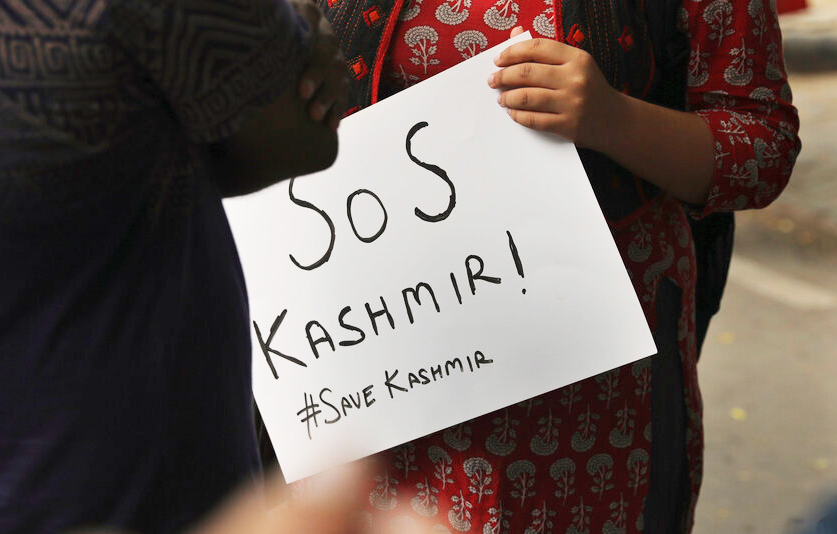 SOS
KASHMIR!
#SAVE KASHMIR